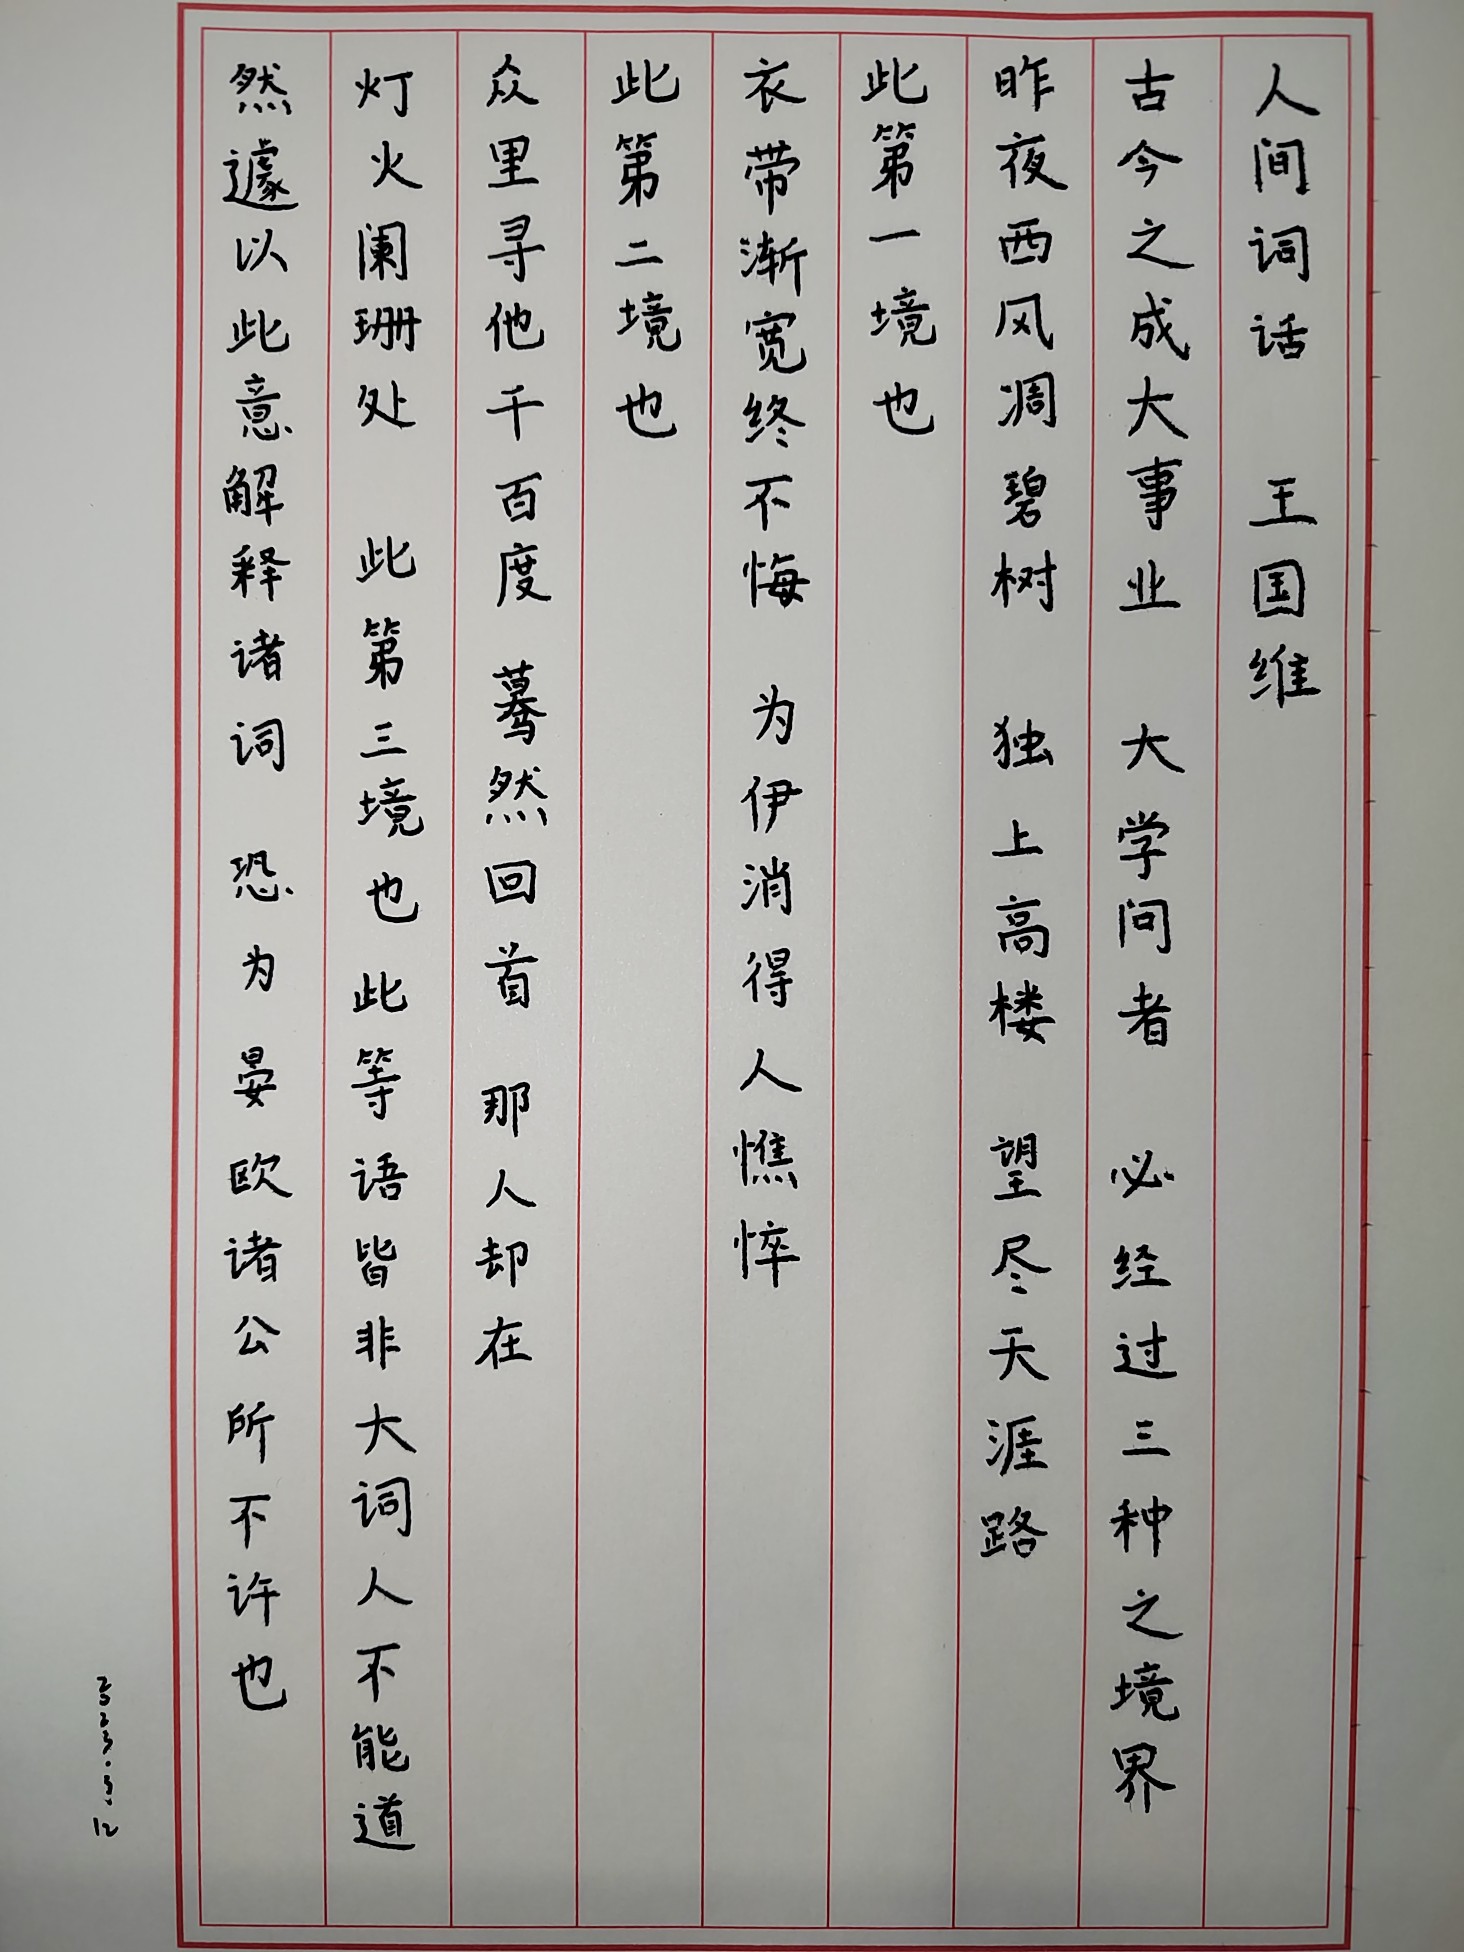 人间词话 王国维
古今之成大事业 大学问者 必经过三种之境界
昨夜西风凋碧树 独上高楼 望尽天涯路
此第一境也
衣带渐宽终不悔 为伊消得人憔悴
此第二境也
众里寻他千百度 蓦然回首 那人却在
灯火阑珊处 此第三境也 此等语皆非大词人不能道
然遽以此意解释诸词 恐为晏欧诸公所不许也